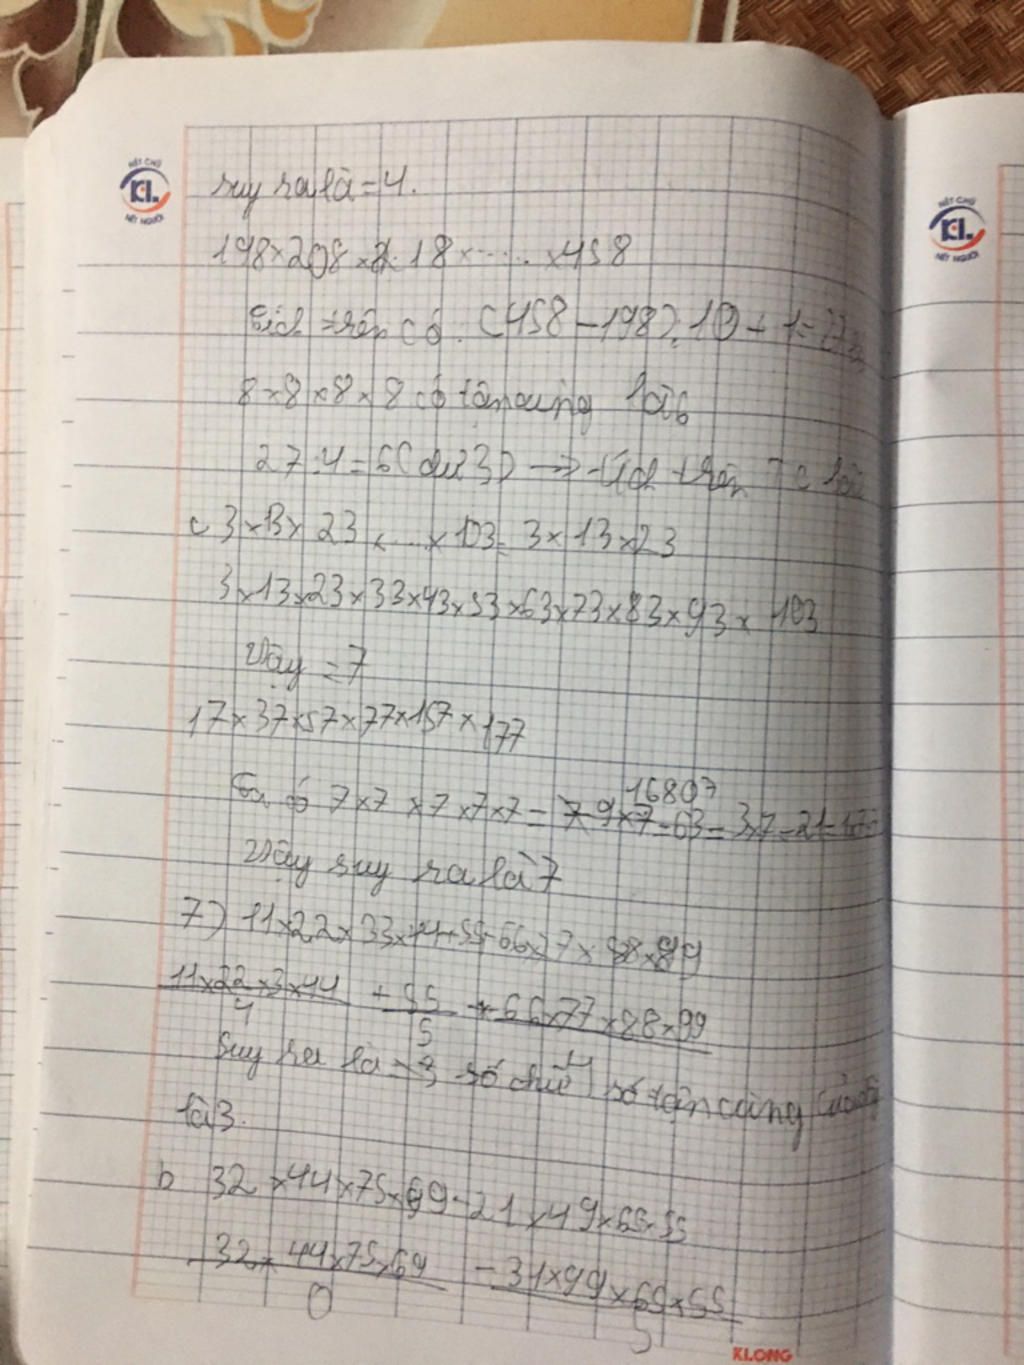 NÉT CHỮ
KL.
NẾT NGƯỜI
suy ra là = 4.
198 × 208 × 218 × ..... × 458
Tích trên có (458 - 198) : 10 + 1 = 27
8 × 8 × 8 × 8 có tận cùng là 6
27 : 4 = 6 (dư 3) → tích trên TC là
c 3 × 13 × 23 × ... × 103 = 3 × 13 × 23
3 × 13 × 23 × 33 × 43 × 53 × 63 × 73 × 83 × 93 × 103
Vậy = 7
17 × 37 × 57 × 77 × 157 × 177
16807
Ta có 7 × 7 × 7 × 7 × 7 = 7 9 × 7 = 63 = 3 × 7 = 21 = 1 × 7 =
Vậy suy ra là 7
7) 11 × 22 × 33 × 44 + 55 - 66 × 77 × 88 × 99
11 × 22 × 3 × 44 + 55 + 66 × 77 × 88 × 99
4 5 4
Suy ra là = 3 số chữ số tận cùng của
là 3.
b 32 × 44 × 75 × 69 - 21 × 49 × 65 × 55
32 × 44 × 75 × 69 - 31 × 99 × 65 × 55
0 5
KLONG
NÉT CHỮ
KL.
NẾT NGƯỜI